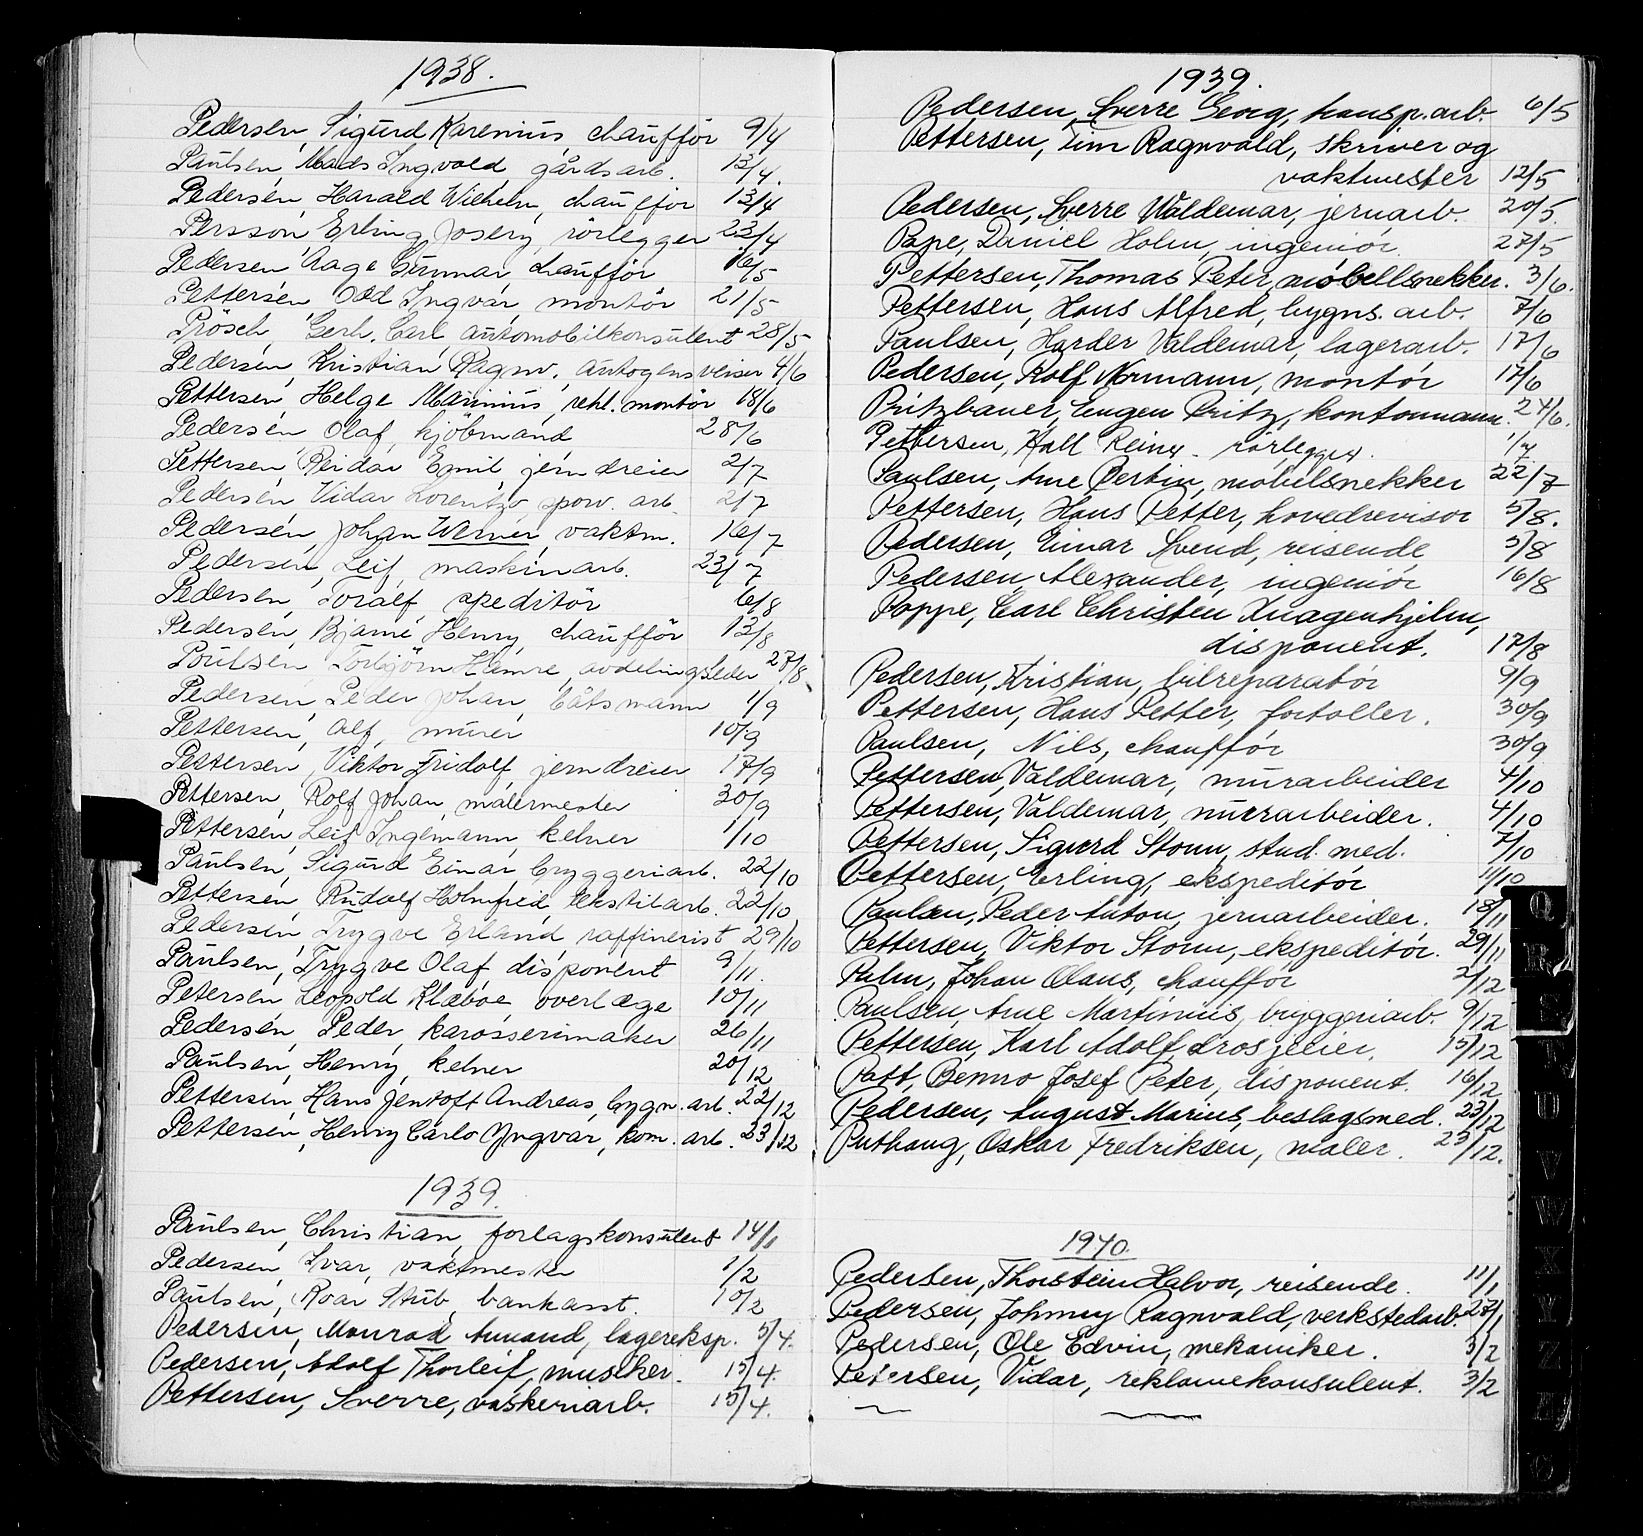 1938.
Pedersen, Sigurd Karenius, chaufför 9/4
Paulsen, Mads Ingvald, gårdsarb. 13/4.
Pedersen, Harald Wilhelm, chaufför 13/4
Persson, Erling Josery, rörlegger 23/4
Pedersen, Aage Gunnar, chaufför 16/5
Pettersen, Odd Ingvar, montör 21/5
Prösch, Gerh. Carl, automobilkonsulent 28/5
Pedersen, Kristian Ragnv. autogensveiser 4/6
Pettersen, Helge Marinius, rekl. montör 18/6
Pedersen, Olaf, kjöbmand 28/6
Pettersen, Reidar Emil, jerndreier 2/7
Pedersen, Vidar Lorentz, sporv. arb. 2/7
Pedersen, Johan Werner, vaktm. 16/7
Pedersen, Leif, maskinarb. 23/7
Pedersen, Toralf, speditör 6/8
Pedersen, Bjarne Henry, chaufför 13/8
Poulsen, Torbjörn Hamre, avdelingsleder 27/8
Pedersen, Peder Johan, båtsmann 1/9
Pettersen, Alf, murer 10/9
Pettersen, Viktor Fridolf, jerndreier 17/9
Pettersen, Rolf Johan, målermester 30/9
Pettersen, Leif Ingemann, kelner 1/10
Paulsen, Sigurd Einar, bryggeriarb. 22/10
Pettersen, Rudolf Holmfred, tekstilarb. 22/10
Pedersen, Trygve Erland, raffinerist 29/10
Paulsen, Trygve Olaf, disponent 9/11.
Petersen, Leopold Klæboe, overlæge 10/11
Pedersen, Peder, karosserimaker 26/11
Paulsen, Henry, kelner 20/12
Pettersen, Hans Jentoft Andreas, bygn. arb. 22/12
Pettersen, Henry Carlo Yngvar, kom. arb. 23/12
1939.
Paulsen, Christian, forlagskonsulent 14/1
Pedersen, Ivar, vaktmester 1/2
Paulsen, Roar Stub, bankasst. 10/2
Pedersen, Monrad Amand, lagereksp. 5/4.
Pedersen, Adolf Thorleif, musiker. 15/4.
Pettersen, Sverre, vaskeriarb. 15/4.
1939.
Pedersen, Sverre Georg, transp.arb. 6/5
Pettersen, Tim Ragnvald, skriver og
vaktmester 12/5
Pedersen, Sverre Waldemar, jernarb. 20/5.
Pape, Daniel Holm, ingeniör. 27/5
Pettersen, Thomas Peter, möbellsnekker. 3/6.
Pettersen, Hans Alfred, bygns. arb. 7/6
Paulsen, Harder Valdemar, lagerarb. 17/6
Pedersen, Rolf Normann, montör 17/6
Pritzbauer, Eugen Fritz, kontormann. 24/6.
Pettersen, Hall Reinx. rörlegger. 1/7
Paulsen, Arne Bertin, möbelsnekker 22/7
Pettersen, Hans Petter, hovedrevisor 5/8.
Pedersen, Einar Svend, reisende 5/8
Pedersen, Alexander, ingeniör 16/8
Poppe, Carl Christen Knagenhjelm,
disponent. 17/8
Pedersen, Kristian, bilreparatör 9/9
Pettersen, Hans Petter, fortoller. 30/9
Paulsen, Nils, chaufför 30/9
Pettersen, Valdemar, murarbeider 4/10
Pettersen, Valdemar, murarbeider. 4/10
Pettersen, Sigurd Stonn, stud. med. 7/10
Pettersen, Erling, ekspeditör 11/10
Paulsen, Peder Anton, jernarbeider. 18/11
Pettersen, Viktor Stonn, ekspeditör. 29/11
Palm, Johan Olaus, chaufför 2/12
Paulsen, Arne Martinius, bryggeriarb. 9/12
Pettersen, Karl Adolf, drosjeeier. 15/12
Patt, Benno Josef Peter, disponent. 16/12
Pedersen, August Marius, beslagsmed. 23/12
Puthaug, Oskar Fredriksen, maler. 23/12.
1940.
Pedersen, Thorstein Halvor, reisende. 11/1
Pedersen, Johnny Ragnvald, verkstedarb. 27/1
Pedersen, Ole Edvin, mekaniker. 3/2
Petersen, Vidar, reklamekonsulent. 3/2
Q
R
S
T
U
V
W
X
Y
Z
Æ
Ø